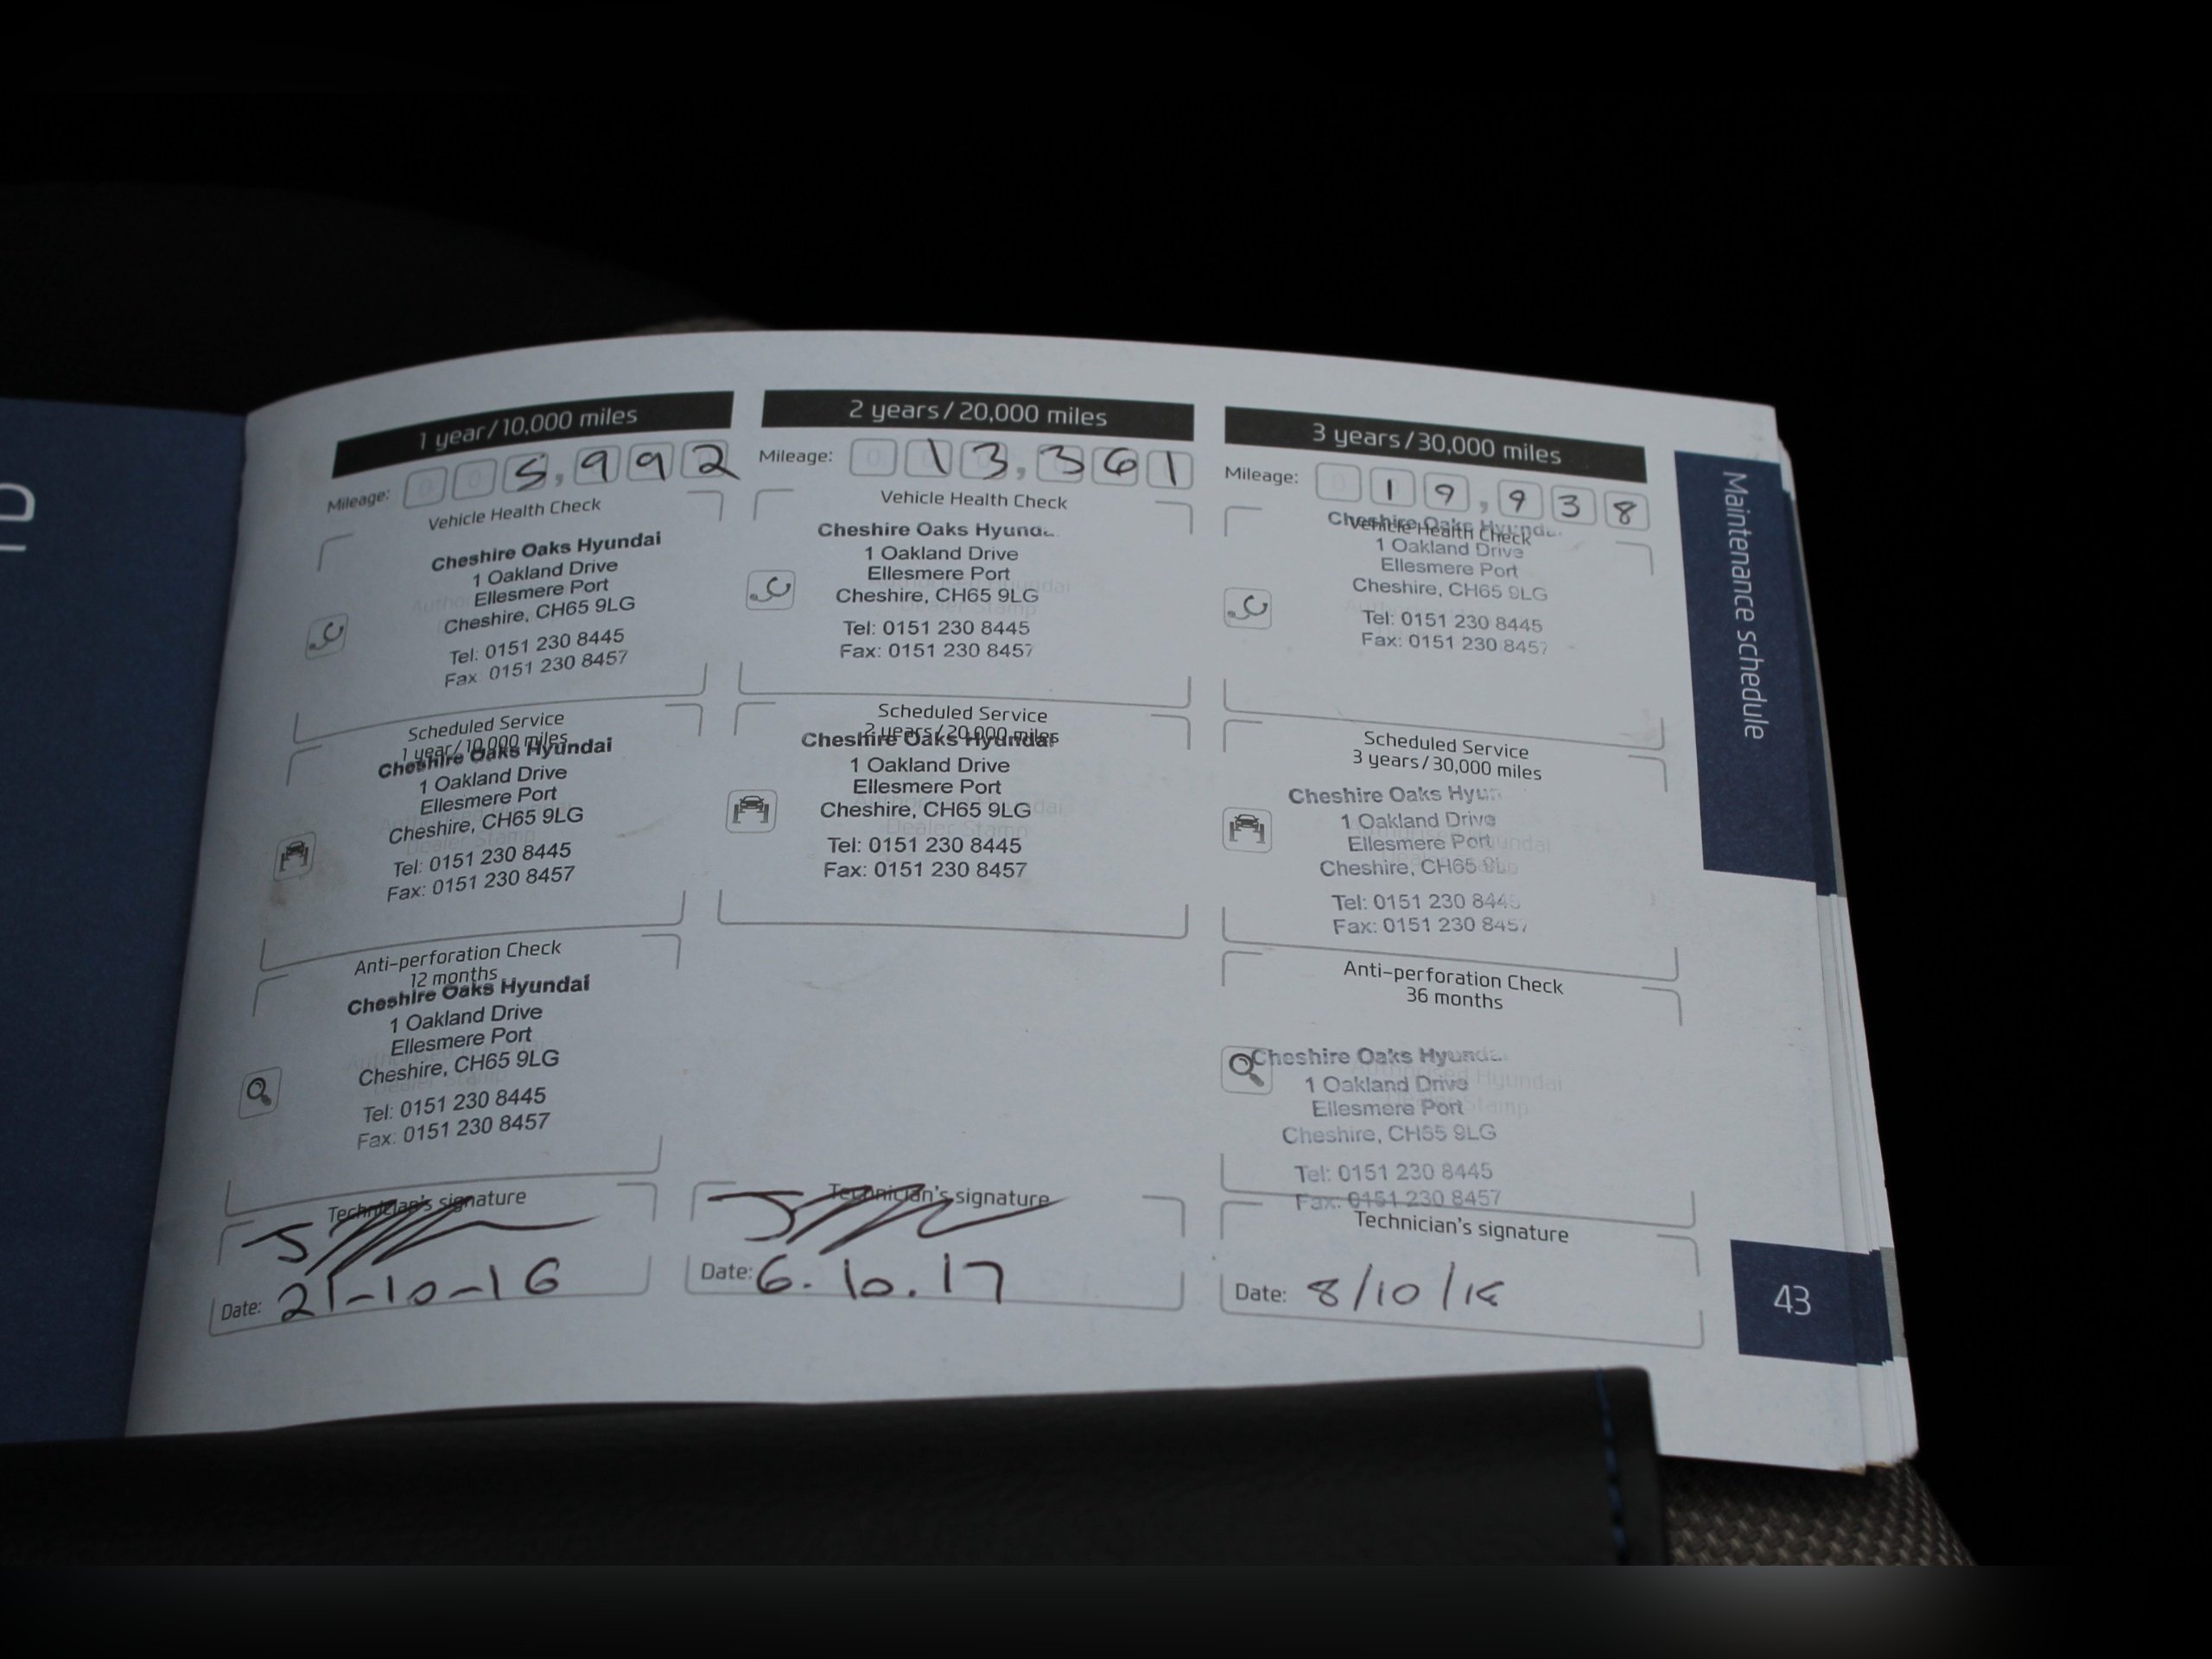 1 year/10,000 miles
Mileage: 5,992
Vehicle Health Check
Cheshire Oaks Hyundai
1 Oakland Drive
Ellesmere Port
Cheshire, CH65 9LG
Tel: 0151 230 8445
Fax: 0151 230 8457
Scheduled Service
1 year/10,000 miles
Cheshire Oaks Hyundai
1 Oakland Drive
Ellesmere Port
Cheshire, CH65 9LG
Tel: 0151 230 8445
Fax: 0151 230 8457
Anti-perforation Check
12 months
Cheshire Oaks Hyundai
1 Oakland Drive
Ellesmere Port
Cheshire, CH65 9LG
Tel: 0151 230 8445
Fax: 0151 230 8457
Technician's signature
Date: 21-10-16
2 years/20,000 miles
Mileage: 13,361
Vehicle Health Check
Cheshire Oaks Hyundai
1 Oakland Drive
Ellesmere Port
Cheshire, CH65 9LG
Tel: 0151 230 8445
Fax: 0151 230 8457
Scheduled Service
2 years/20,000 miles
Cheshire Oaks Hyundai
1 Oakland Drive
Ellesmere Port
Cheshire, CH65 9LG
Tel: 0151 230 8445
Fax: 0151 230 8457
Technician's signature
Date: 6.10.17
3 years/30,000 miles
Mileage: 19,938
Vehicle Health Check
Cheshire Oaks Hyundai
1 Oakland Drive
Ellesmere Port
Cheshire, CH65 9LG
Tel: 0151 230 8445
Fax: 0151 230 8457
Scheduled Service
3 years/30,000 miles
Cheshire Oaks Hyun
1 Oakland Drive
Ellesmere Port
Cheshire, CH65 9L
Tel: 0151 230 8445
Fax: 0151 230 8457
Anti-perforation Check
36 months
Cheshire Oaks Hyundai
1 Oakland Drive
Ellesmere Port
Cheshire, CH65 9LG
Tel: 0151 230 8445
Fax: 0151 230 8457
Technician's signature
Date: 8/10/18
Maintenance schedule
43